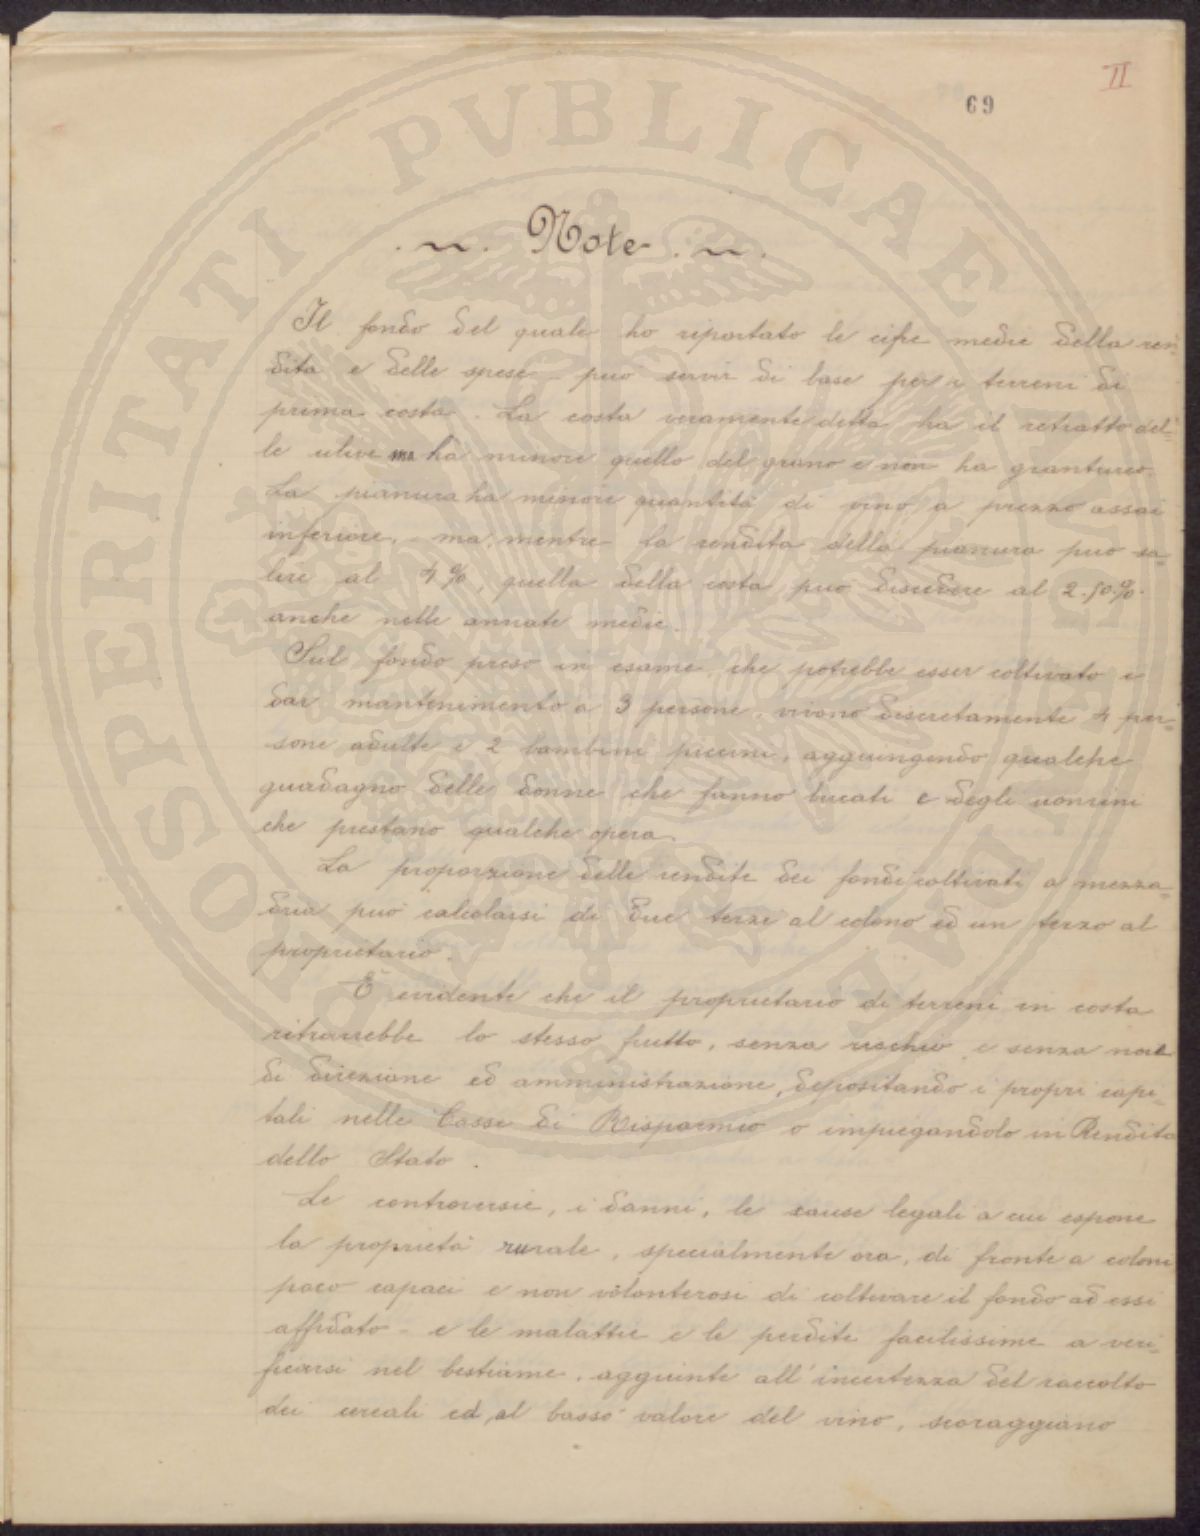 II
69
Note
Il fondo del quale ho riportato le cifre medie della ren=
dita e delle spese può servir di base per i terreni di
prima costa. La costa veramente detta ha il retratto del=
le ulive ma ha minore quello del grano e non ha granturco.
La pianura ha minore quantità di vino, a prezzo assai
inferiore, ma, mentre la rendita della pianura può sa=
lire al 4%, quella della costa può discendere al 2.50%.
anche nelle annate medie.
Sul fondo preso in esame, che potrebbe esser coltivato e
dar mantenimento a 3 persone, vivono discretamente 4 per=
sone adulte e 2 bambini piccini, aggiungendo qualche
guadagno delle donne che fanno bucati e degli uomini
che prestano qualche opera.
La proporzione delle rendite dei fondi coltivati a mezza=
dria può calcolarsi di due terzi al colono ed un terzo al
proprietario.
È evidente che il proprietario di terreni in costa
ritrarrebbe lo stesso frutto, senza rischio e senza noie
di direzione ed amministrazione, depositando i propri capi=
tali nelle Casse di Risparmio o impiegandolo in Rendita
dello Stato.
Le controversie, i danni, le cause legali a cui espone
la proprietà rurale, specialmente ora, di fronte a coloni
poco capaci e non volonterosi di coltivare il fondo ad essi
affidato - e le malattie e le perdite facilissime a veri=
ficarsi nel bestiame, aggiunte all'incertezza del raccolto
dei cereali ed al basso valore del vino, scoraggiano
PROSPERITATI PVBLICAE